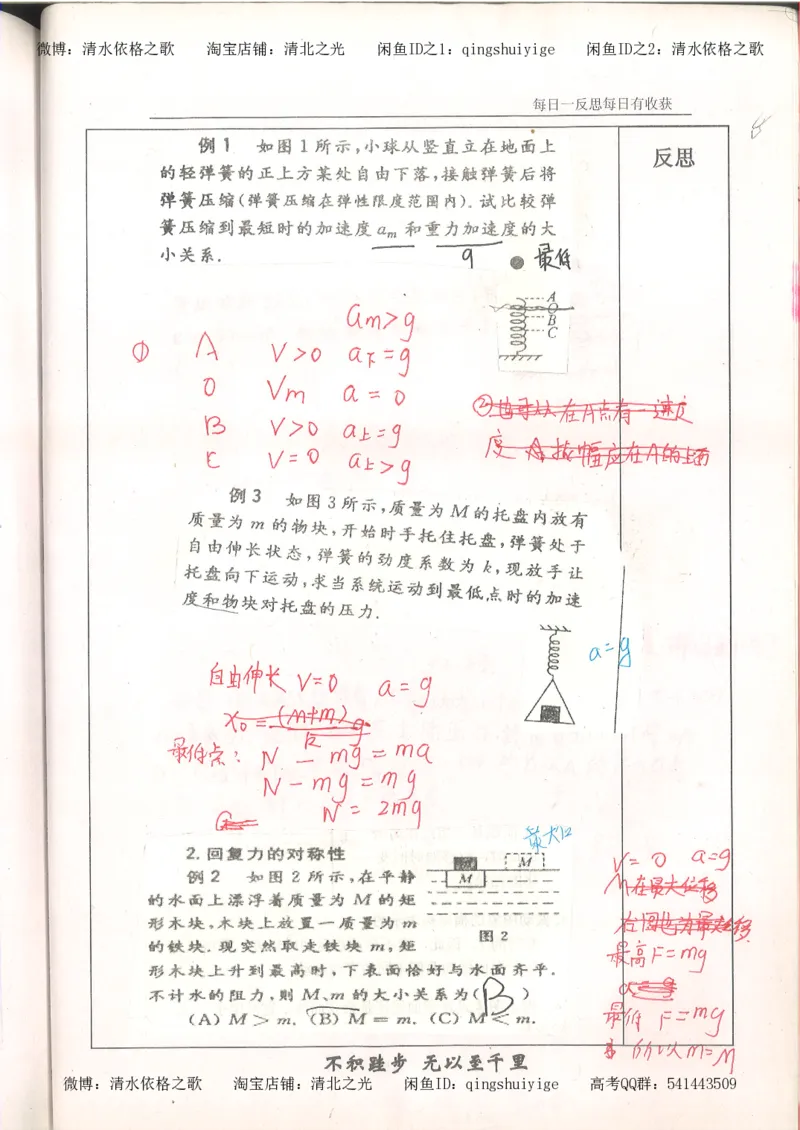 微博：清水依格之歌 淘宝店铺：清北之光 闲鱼ID之1：qingshuiyige 闲鱼ID之2：清水依格之歌
每日一反思每日有收获
反思
例1 如图1所示,小球从竖直立在地面上
的轻弹簧的正上方案处自由下落,接触弹簧后将
弹簧压缩(弹簧压缩在弹性限度范围内).试比较弹
簧压缩到最短时的加速度 am 和重力加速度的大
小关系.
g 最低
A
O
B
C
am>g
① A V>0 a下=g
O Vm a=0
B V>0 a上=g
C V=0 a上>g
例3 如图3所示,质量为 M 的托盘内放有
质量为 m 的物块,开始时手托住托盘,弹簧处于
自由伸长状态,弹簧的劲度系数为 k,现放手让
托盘向下运动,求当系统运动到最低点时的加速
度和物块对托盘的压力.
a=g
自由伸长 V=0 a=g
最低点: N-mg=ma
N-mg=mg
N=2mg
最大位
2.回复力的对称性
例2 如图2所示,在平静
的水面上漂浮着质量为 M 的矩
形木块,木块上放置一质量为 m
的铁块.现突然取走铁块 m,矩
形木块上升到最高时,下表面恰好与水面齐平.
不计水的阻力,则 M、m 的大小关系为( B )
(A) M > m. (B) M = m. (C) M < m.
M
M
图2
V=0 a=g
最高 F=mg
最低 F=mg
所以m=M
不积跬步 无以至千里
微博：清水依格之歌 淘宝店铺：清北之光 闲鱼ID：qingshuiyige 高考QQ群：541443509